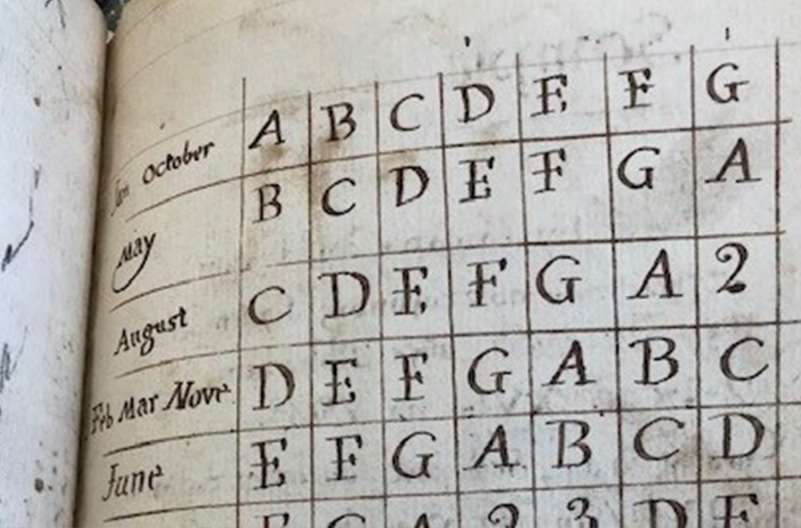 Jan October A B C D E F G
May B C D E F G A
August C D E F G A 2
Feb Mar Nove D E F G A B C
June E F G A B C D
F G A 2 3 D E